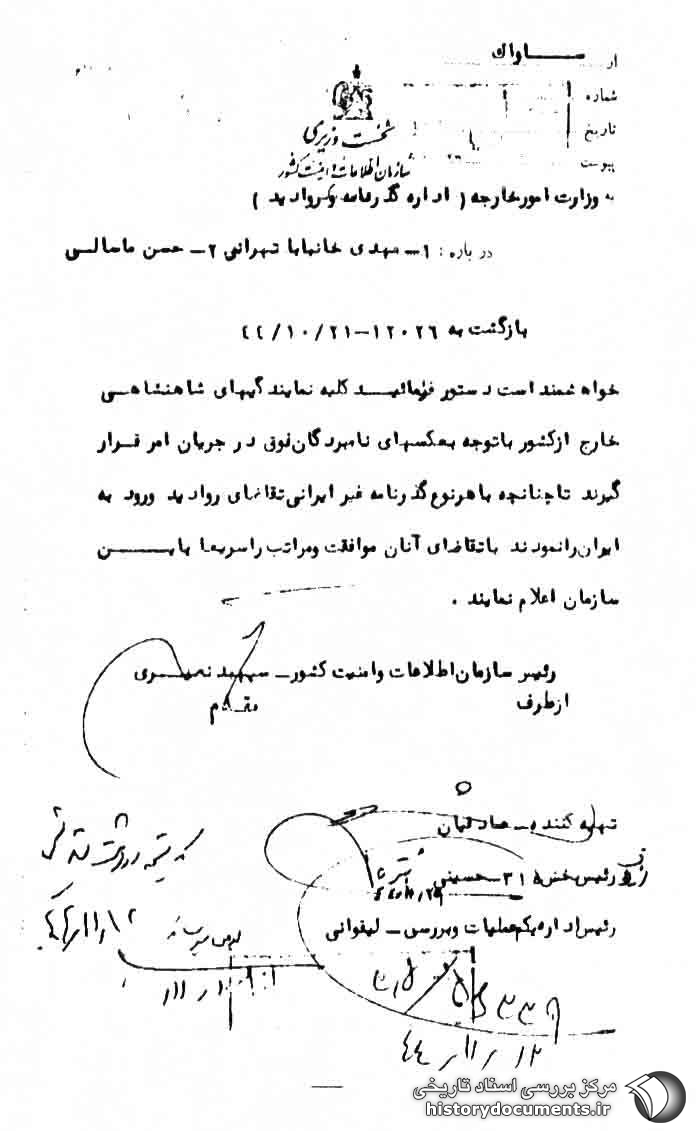 از ساواک
شماره
تاریخ
پیوست
نخست وزیری
سازمان اطلاعات و امنیت کشور
به وزارت امورخارجه ( اداره گذرنامه وروادید )
درباره : ۱ـ مهدی خانبابا تهرانی ۲ـ حسن ماسالی
بازگشت به ۱۲۰۲۶ـ۴۴/۱۰/۲۱
خواهشمند است دستور فرمائید کلیه نمایندگیهای شاهنشاهی
خارج ازکشور باتوجه بعکسهای نامبردگان فوق در جریان امر قرار
گیرند تاچنانچه باهرنوع گذرنامه غیر ایرانی تقاضای روادید ورود به
ایران رانمودند باتقاضای آنان موافقت ومراتب راسریعا باین
سازمان اعلام نمایند .
رئیس سازمان اطلاعات وامنیت کشور ـ سپهبد نصیری
ازطرف مقدم
تهیه کننده ـ صادقیان
رئیس بخش ۳۱۵ ـ حسینی
رئیس اداره یکم عملیات وبررسی ـ لیقوانی
۴۴/۱۱/۱۲
مرکز بررسی اسناد تاریخی
historydocuments.ir